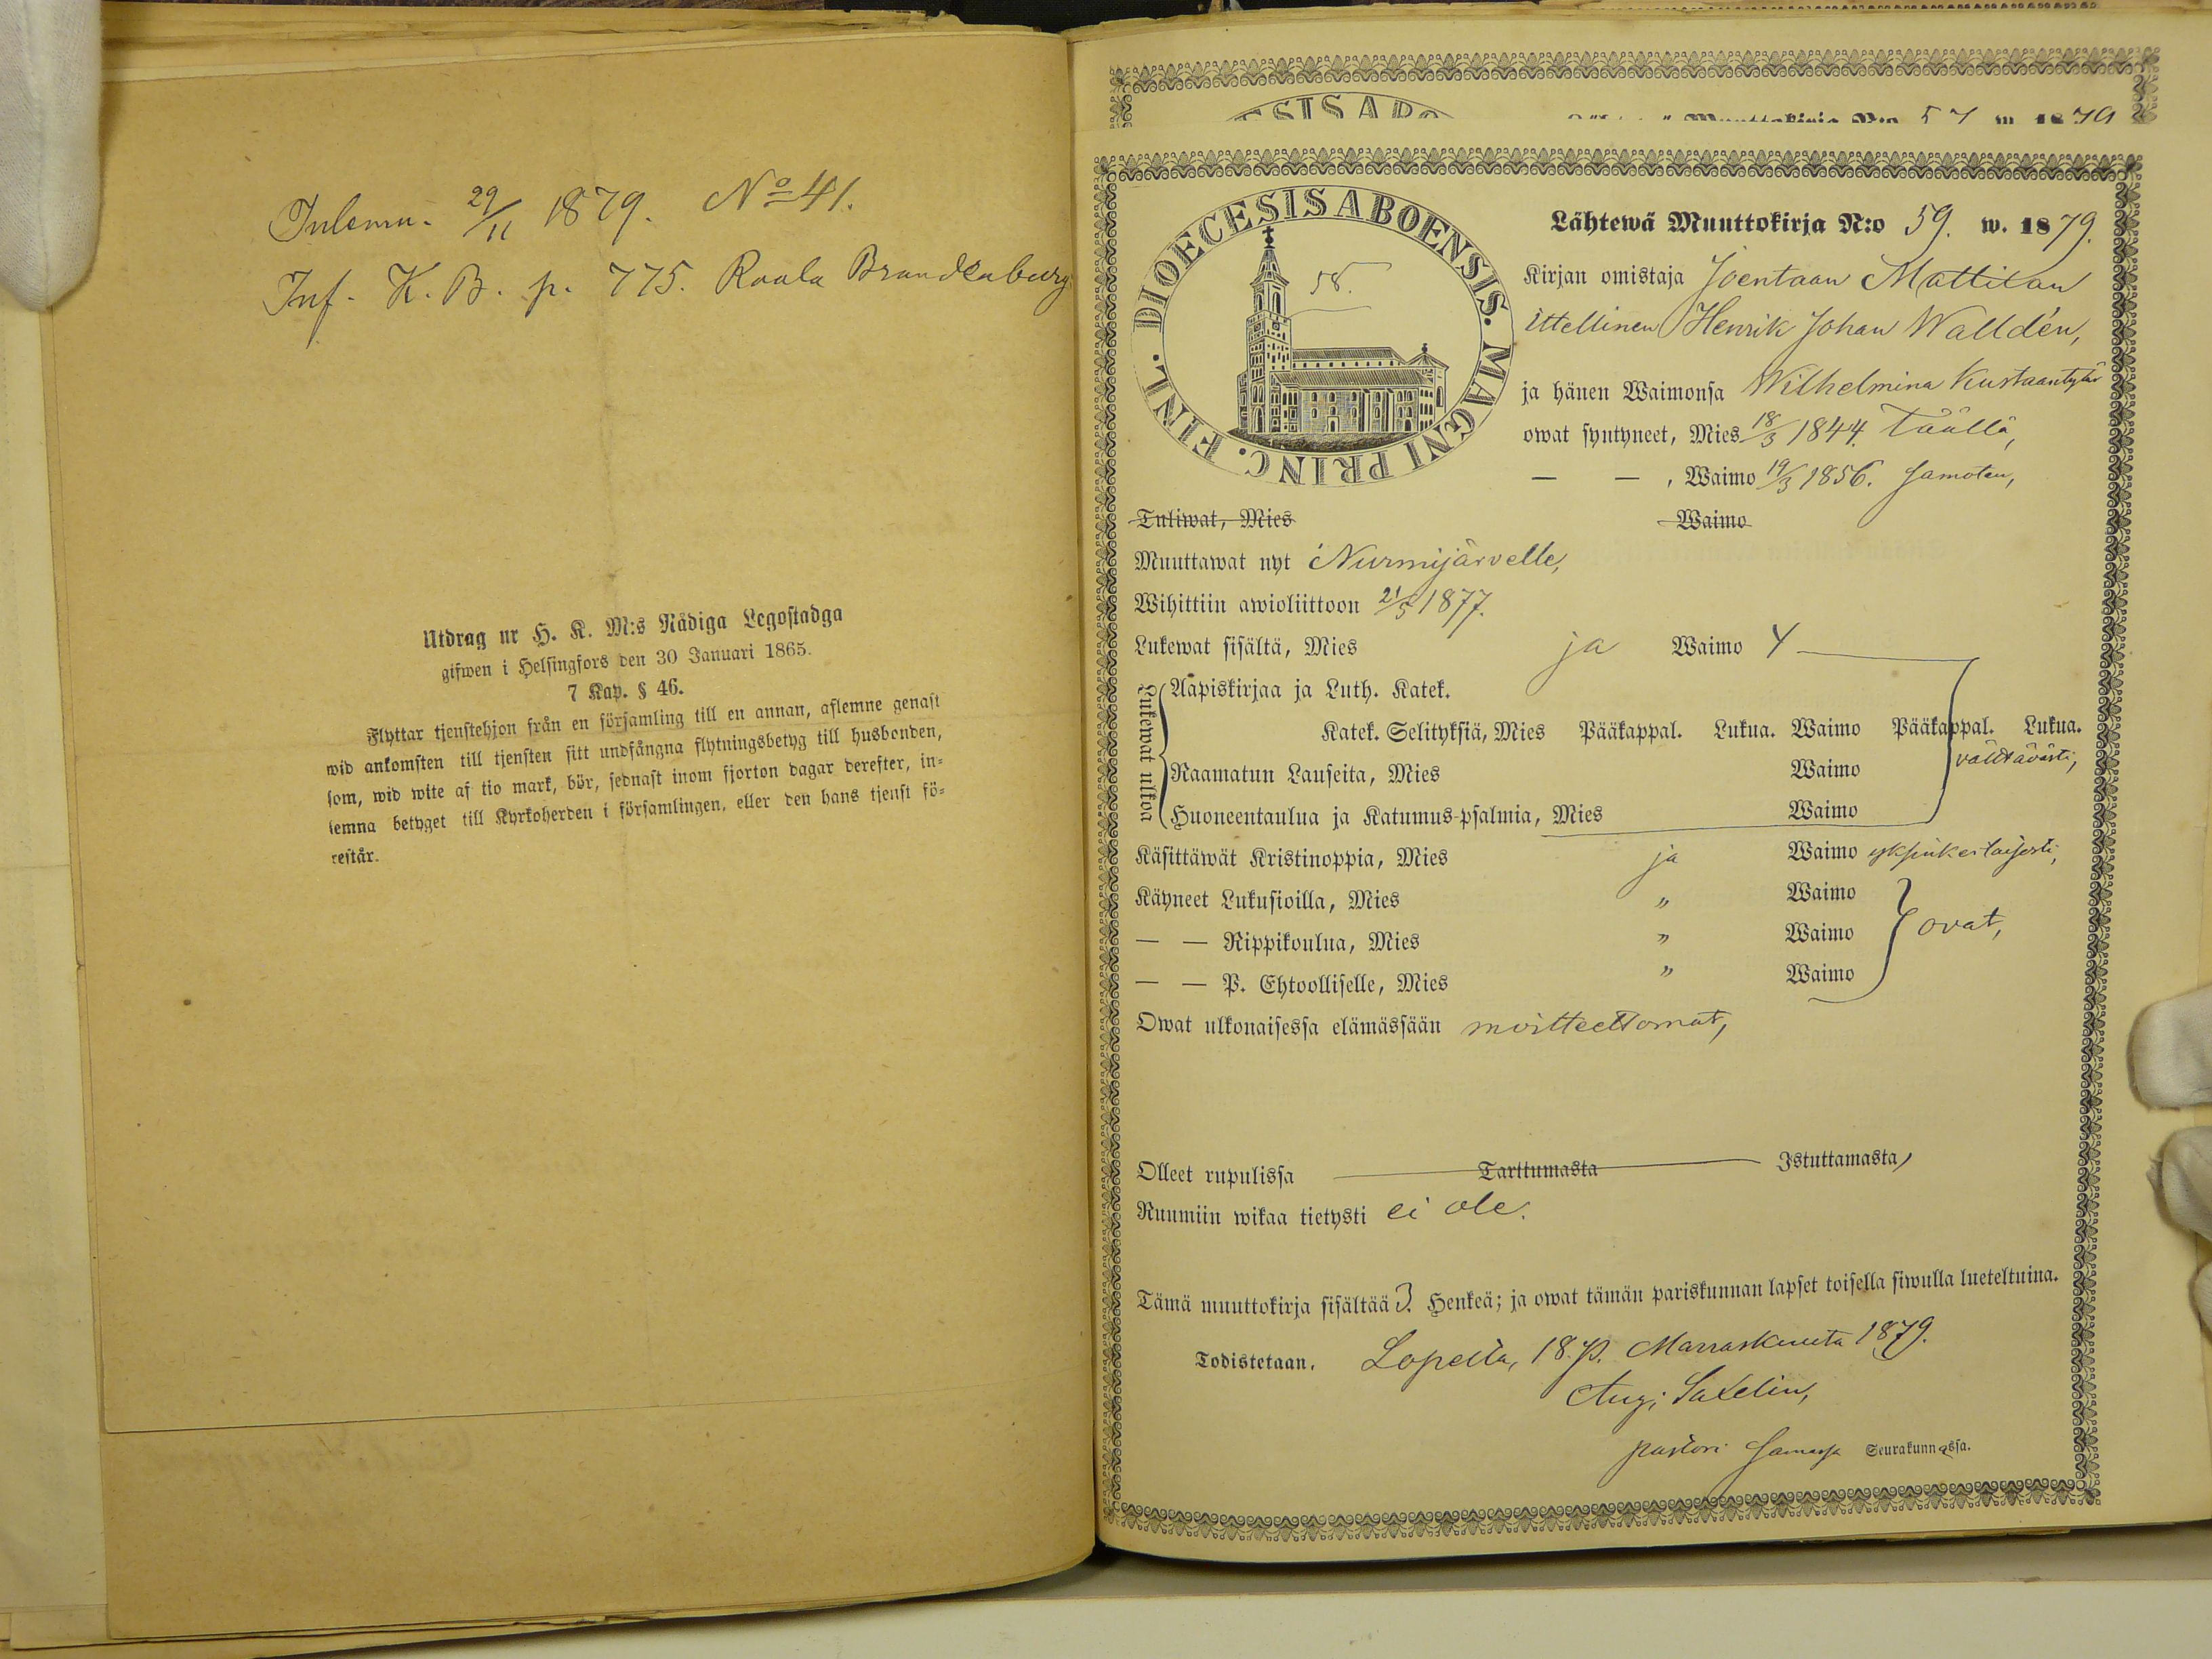 Inlemn. 29/11 1879. No 41.
Inf. K. B. p. 775. Raala Brandenburg
Utdrag ur H. K. M:s Nådiga Legostadga
gifwen i Helsingfors den 30 Januari 1865.
7 Kap. § 46.
Flyttar tjenstehjon från en församling till en annan, aflemne genast
wid ankomsten till tjensten sitt undfångna flytningsbetyg till husbonden,
som, wid wite af tio mark, bör, sednast inom fjorton dagar derefter, in-
lemna betyget till Kyrkoherden i församlingen, eller den hans tjenst fö-
restår.
ESIS ABO
Muuttokirja N:o 57 w. 1879
FINL. DIOECESIS ABOENSIS. MAGNI PRINC.
58.
Lähtewä Muuttokirja N:o 59. w. 1879.
Kirjan omistaja Joentaan Mattilan
ittellinen Henrik Johan Walldén,
ja hänen Waimonsa Wilhelmina Kustaantytär
owat syntyneet, Mies 18/3 1844 Täällä,
— — , Waimo 19/3 1856. samoten,
Tuliwat, Mies Waimo
Muuttawat nyt Nurmijärvelle,
Wihittiin awioliittoon 21/5 1877.
Lukewat sisältä, Mies ja Waimo
Lukewat ulkoa
Aapiskirjaa ja Luth. Katek.
Katek. Selityksiä, Mies Pääkappal. Lukua. Waimo Pääkappal. Lukua.
välttävästi,
Raamatun Lauseita, Mies Waimo
Huoneentaulua ja Katumus-psalmia, Mies Waimo
Käsittäwät Kristinoppia, Mies ja Waimo yksinkertaisesti,
Käyneet Lukusioilla, Mies " Waimo
— — Rippikoulua, Mies " Waimo ovat,
— — P. Ehtoolliselle, Mies " Waimo
Owat ulkonaisessa elämässään moitteettomat,
Olleet rupulissa Tarttumasta Istuttamasta,
Ruumiin wikaa tietysti ei ole.
Tämä muuttokirja sisältää 3. Henkeä; ja owat tämän pariskunnan lapset toisella siwulla lueteltuina.
Todistetaan. Lopella, 18. p. Marraskuuta 1879.
Aug. Saxelin,
pastori samassa Seurakunnassa.